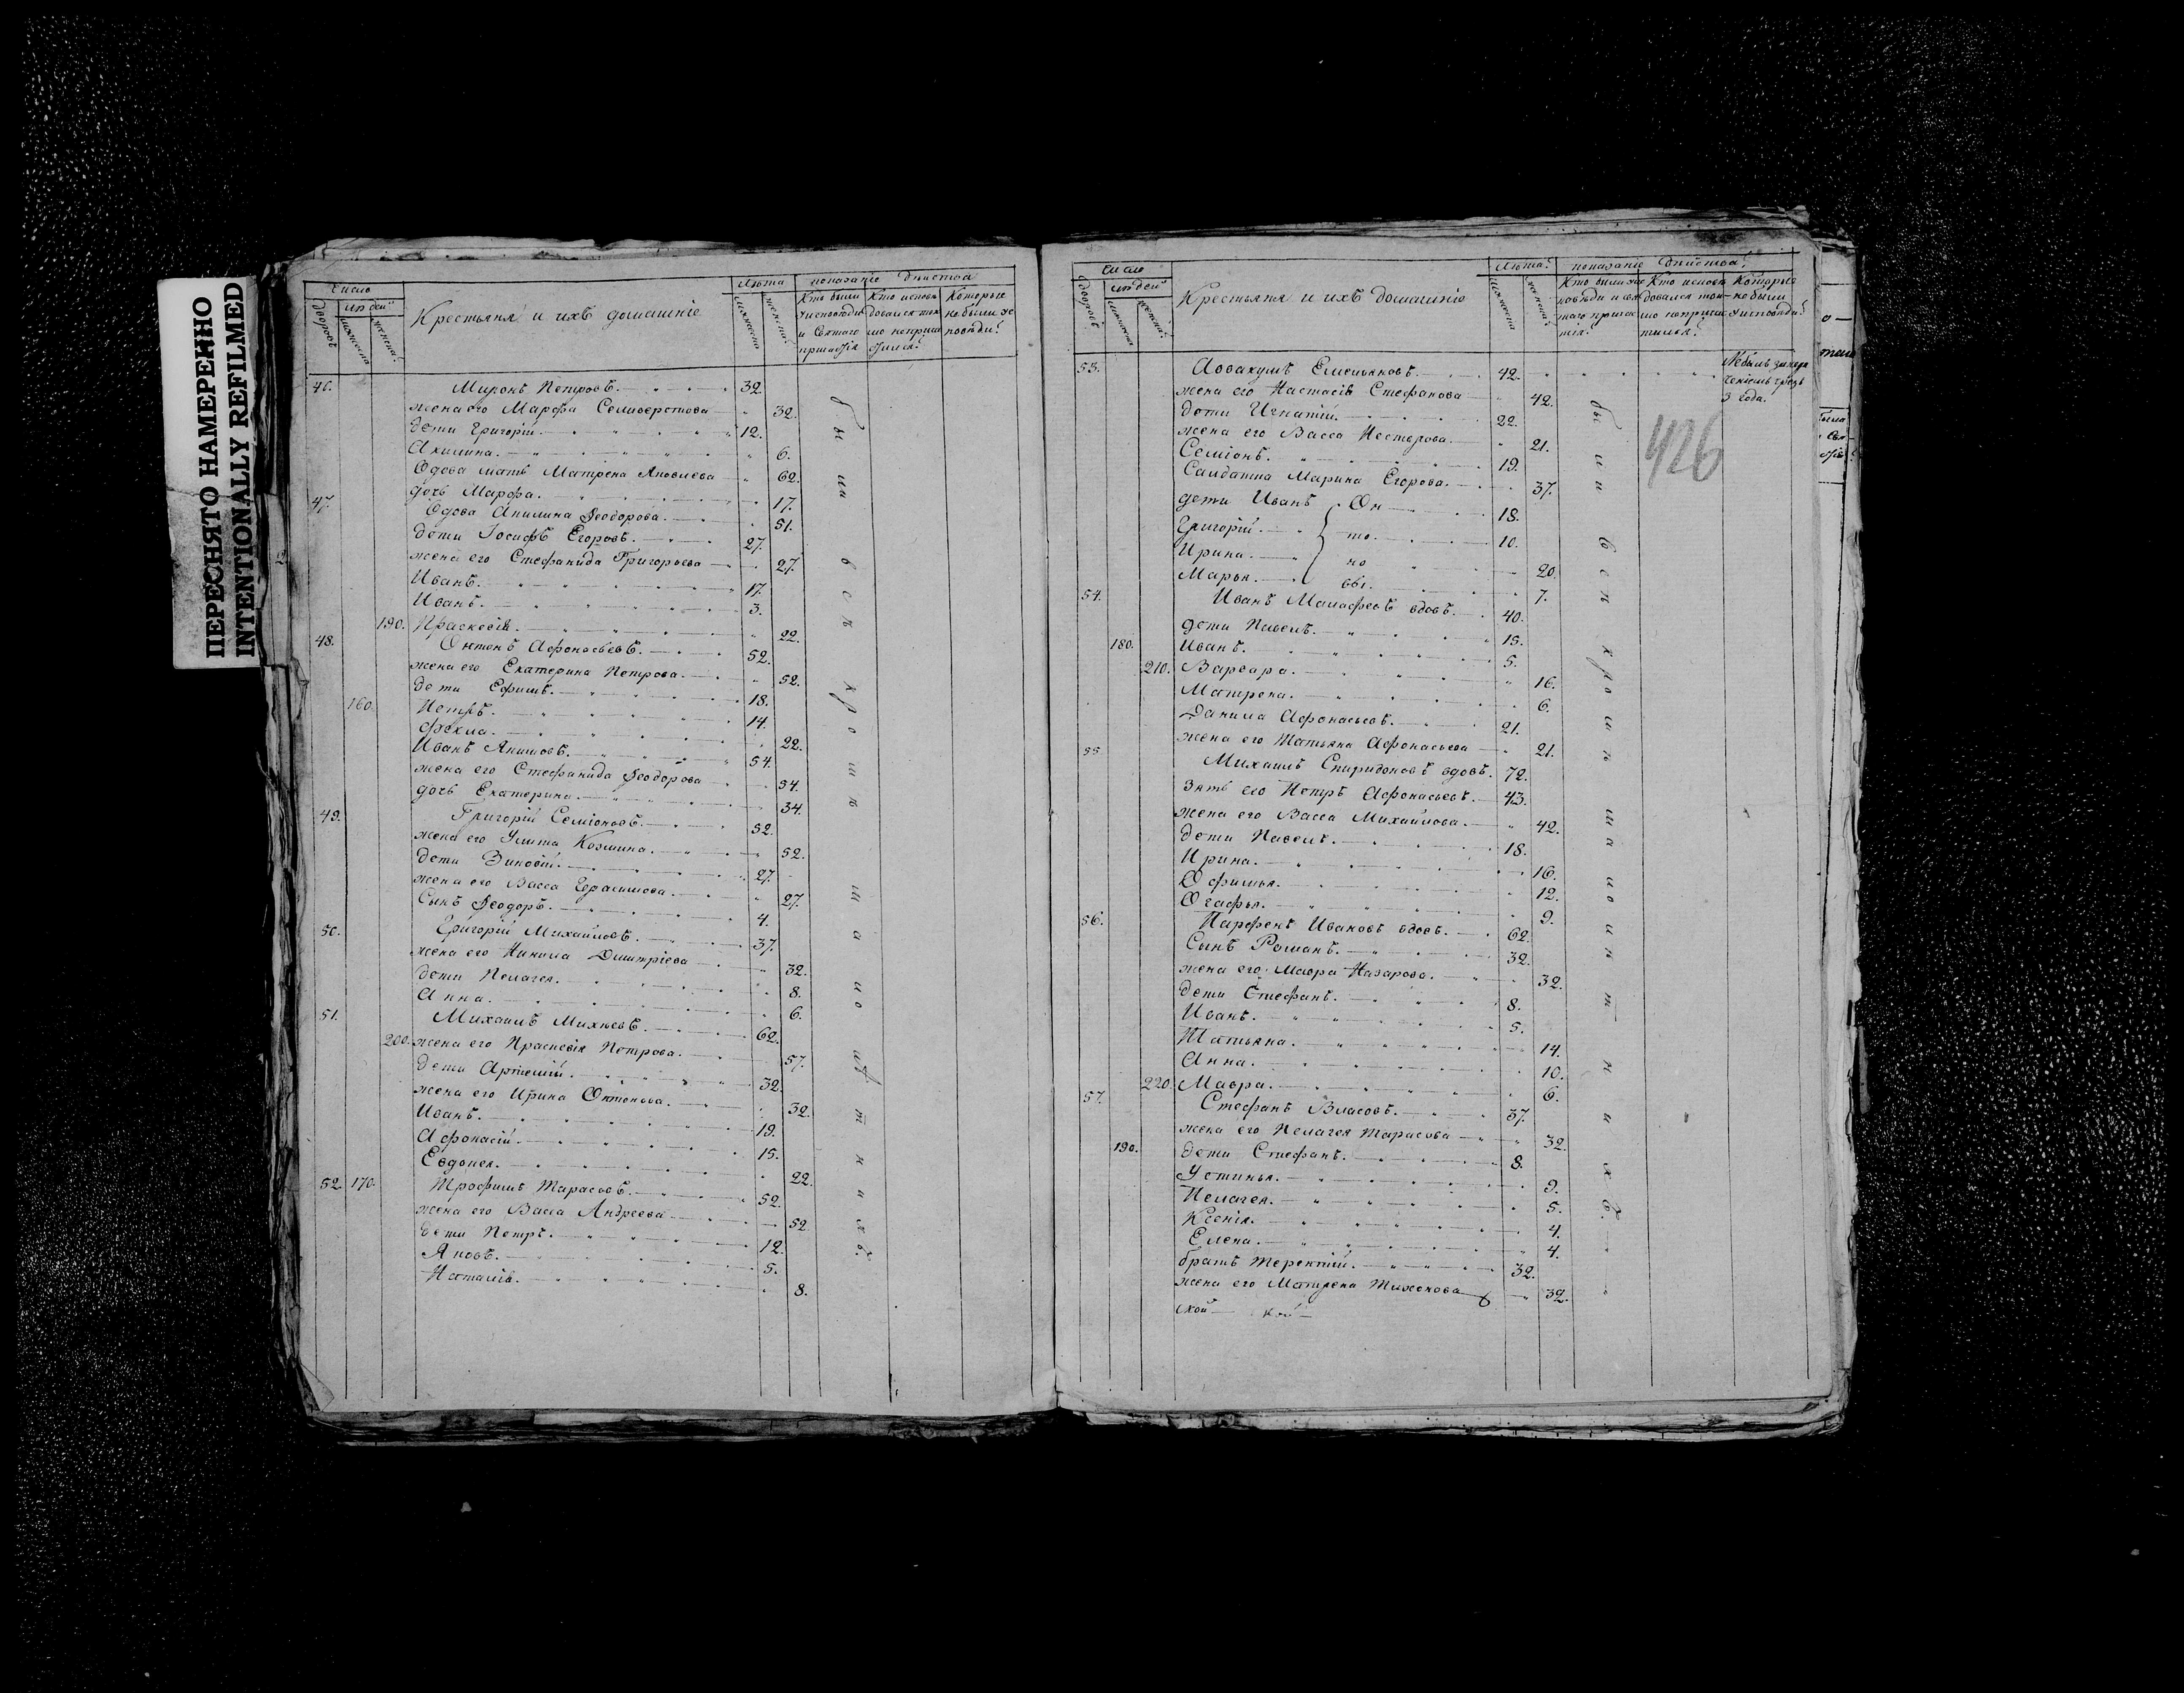 ПЕРЕСНЯТО НАМЕРЕННО
INTENTIONALLY REFILMED
Число
людей
дворовъ
мужеска
женска
Крестьяня и ихъ домашніе
Люта
мужеска
женска
показаніе
Кто были
и Святаго
Которые
не были
46. Миронъ Петровъ. 32.
жена его Марфа Селиверстова 32.
дети Григорій. 12.
Акилина. 6.
Вдова мать Матрена Яковлева 62.
дочь Марфа. 17.
47. Вдова Акилина Ѳеодорова. 51.
дети Іосифъ Егоровъ. 27.
жена его Стефанида Григорьева 27.
Иванъ. 17.
Иванъ. 3.
190. Праскевія. 22.
48. Октонъ Афонасьевъ. 52.
жена его Екатерина Петрова. 52.
дети Ефимъ. 18.
160. Петръ. 14.
Фекла. 22.
Иванъ Якимовъ. 54.
жена его Стефанида Ѳеодорова 54.
дочь Екатерина. 34.
49. Григорій Семіоновъ. 52.
жена его Улита Козмина. 52.
дети Зиновій. 27.
жена его Васса Герасимова. 27.
Сынъ Ѳеодоръ. 4.
50. Григорій Михайловъ. 37.
жена его Дмитріева 32.
дети Пелагея. 8.
Анна. 6.
51. Михаилъ Михѣевъ. 62.
200. жена его Праскевія Петрова. 57.
дети Артемій. 32.
жена его Ирина Октонова. 32.
Иванъ. 19.
Афонасій. 15.
Евдокея. 22.
52. 170. Трофимъ Тарасовъ. 52.
жена его Васса Андреева 52.
дети Петръ. 12.
Яковъ. 5.
Наталія. 8.
были всѣ кромѣ малолѣтнихъ.
Число
людей
дворовъ
мужеска
женска
Крестьяня и ихъ домашніе
Люта
мужеска
женска
показаніе действа
Которые
не были
53. Аввакумъ Емельяновъ. 42.
Небылъ за
3 года.
жена его Настасія Стефанова 42.
дети Игнатій. 22.
жена его Васса Нестерова. 21.
Семіонъ. 19.
Салдатка Марина Егорова. 37.
дети Иванъ 18.
Григорій. 10.
Ирина. 20.
Марья. 7.
426
54. Иванъ Малафѣевъ вдовъ. 40.
дети Павелъ. 15.
180. Иванъ. 5.
210. Варвара. 16.
Матрена. 6.
Данила Афонасьевъ. 21.
жена его Татьяна Афонасьева 21.
55. Михаилъ Спиридоновъ вдовъ. 72.
Зять его Петръ Афонасьевъ. 43.
жена его Васса Михайлова. 42.
дети Павелъ. 18.
Ирина. 16.
Офимья. 12.
Огафья. 9.
56. Парфенъ Ивановъ вдовъ. 62.
Сынъ Романъ. 32.
жена его Мавра Назарова. 32.
дети Стефанъ. 8.
Иванъ. 5.
Татьяна. 14.
Анна. 10.
220. Мавра. 6.
57. Стефанъ Власовъ. 37.
жена его Пелагея Тарасова 32.
190. дети Стефанъ. 8.
Устинья. 9.
Пелагея. 5.
Ксенія. 4.
Елена. 4.
братъ Терентій. 32.
жена его Матрена Тихонова 32.
были всѣ кромѣ малолѣтнихъ.